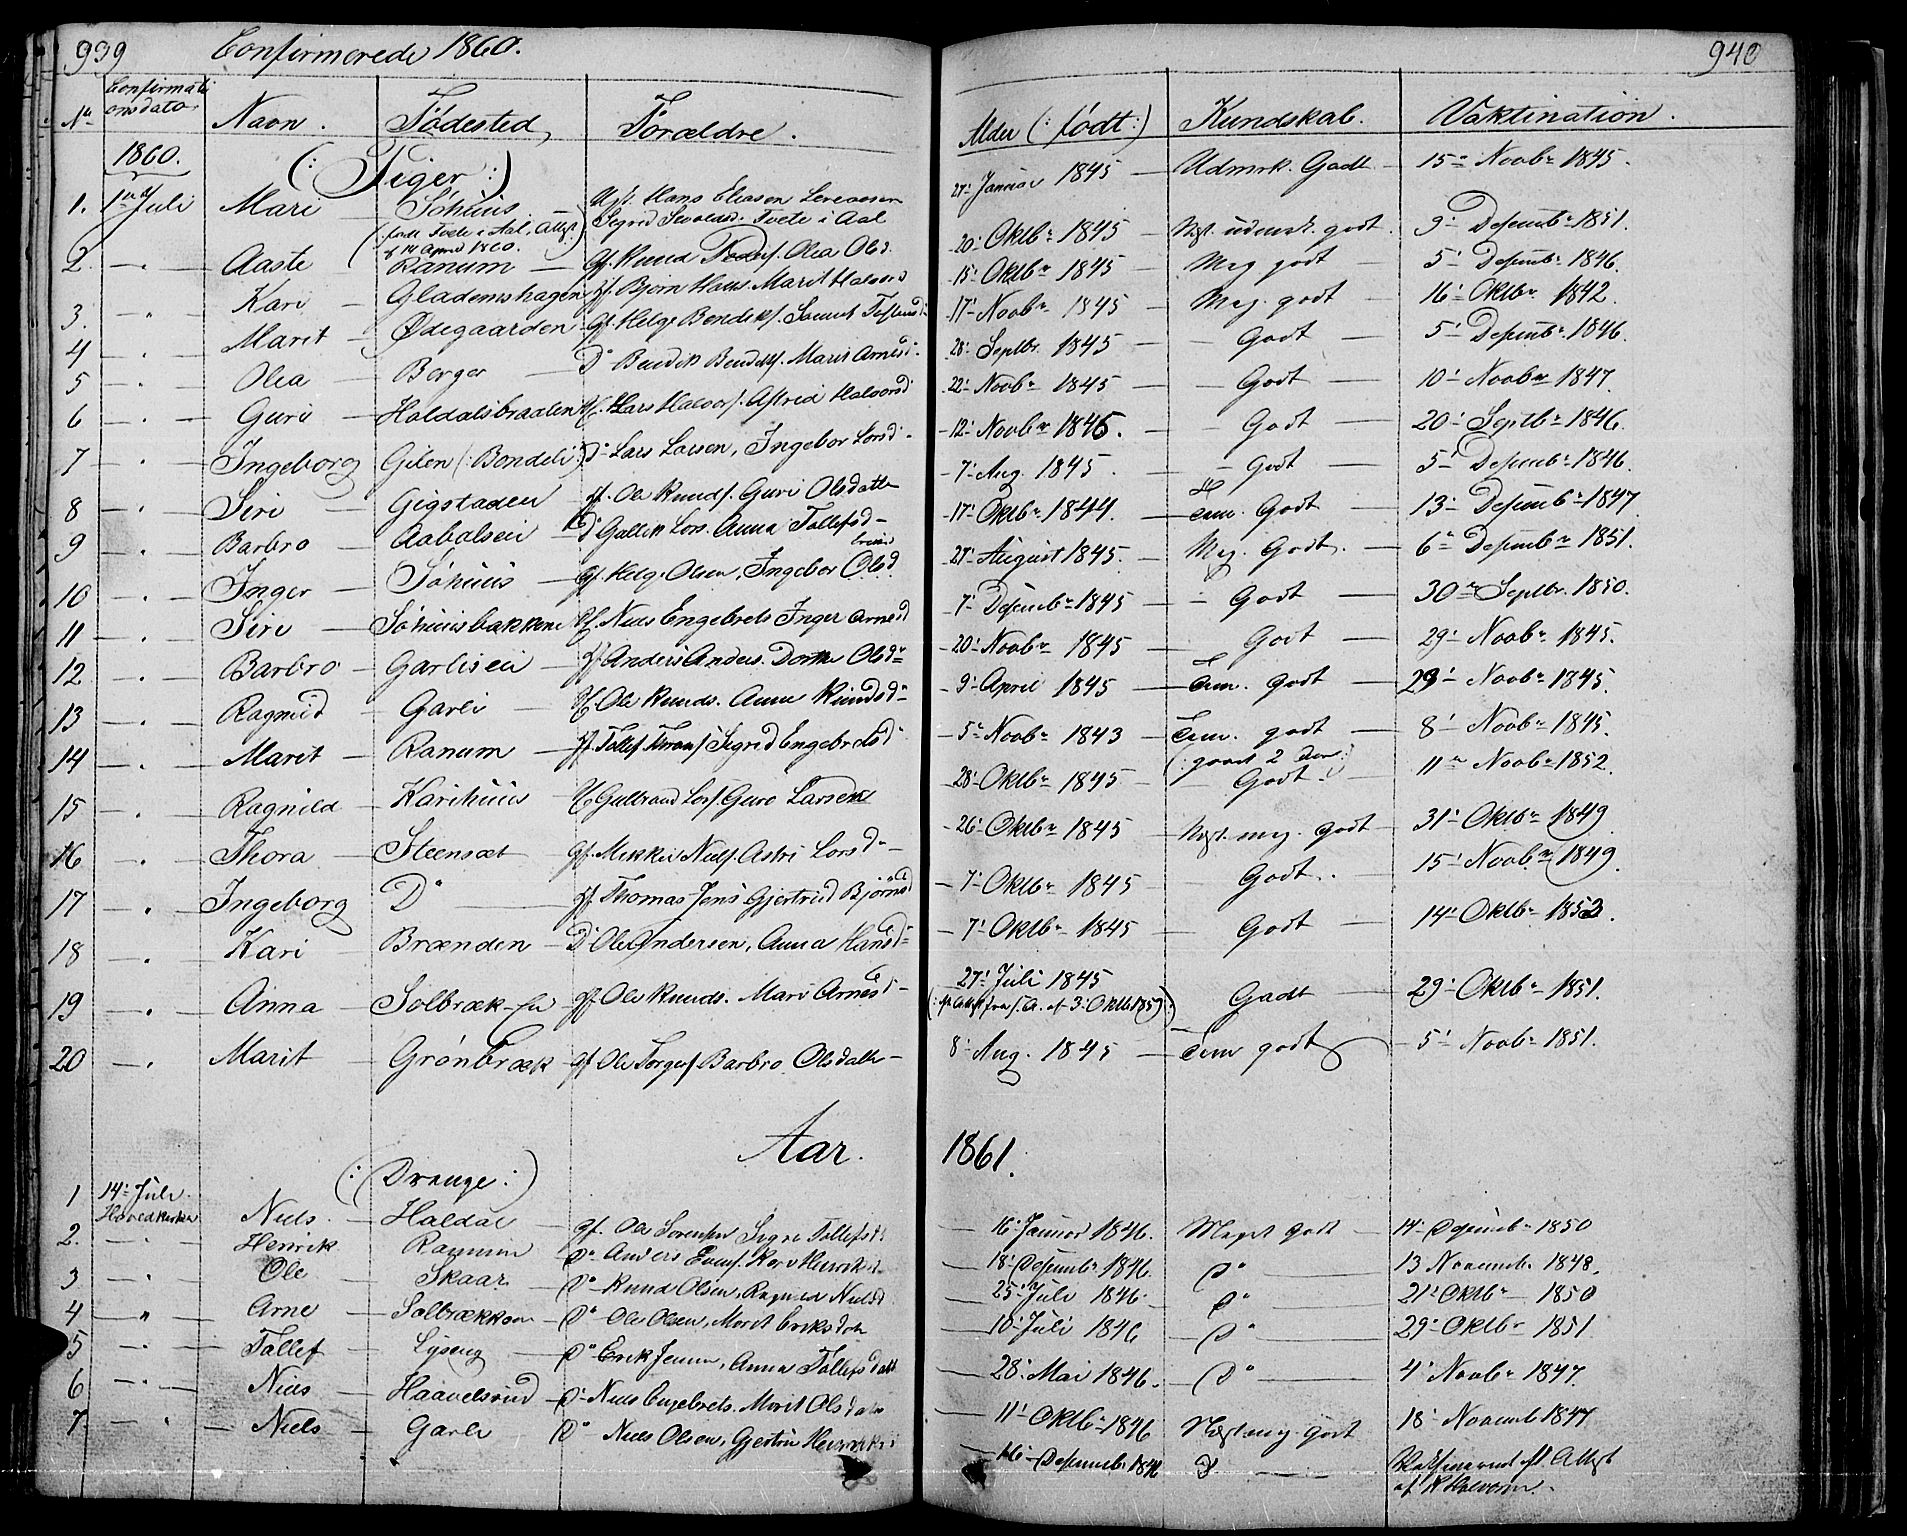 939 Confirmerede 1860. 940
No Confirmationsdato Navn. Födested, Forældre. Alder (: født:) Kundskab. Vaktination.
1860. (: Piger :)
1. 1ste Juli Mari Söhuus Hans Eliasen 27' Januar 1845 — Udmrk. Godt — 15' Novbr 1845.
(född Tvete i Aal. Attest af 14 April 1860. Sigrid Tvete i Aal
2. — " — Aaste Ranum — gf. Knud Olea Olsd. 20' Oktbr 1845 — godt. 9' Desembr 1851.
3. — " — Kari Gladenshagen gf. Björn Hans. Marit Halvord 15' Oktbr 1845 — Meg godt — 5' Desembr 1846.
4 — " — Marit — Ødegaarden gf. Helge Bendiks. 17' Novbr 1845 — Meg. godt — 16' Oktbr 1842.
5 — " — Olea — Berger — Do Bendik Bendiks. Marit Arnesd. 28' Septbr. 1845 — Godt — 5' Desembr 1846.
6 — " — Guri — Haldalsbraaden Lars Halvors. Astrid Halvorsd. 22' Novbr 1845 — Godt — 10' Novbr 1847.
7 — " — Ingeborg Gilen (: Bondeli :) Do Lars Larsen, Ingebor Larsd. 12' Novbr 1845. — Godt — 20' Septbr 1846.
8 — " — Siri — Gigstaden gf. Ole Knuds. Guri Olsdatter 7' Aug. 1845. — Godt — 5' Desembr 1846.
9 — " — Barbro — Aabalseie Do Gullik Lars. Anna Tollefsd. 17' Oktbr 1844. Tem. Godt — 13' Desembr 1847.
10 — " — Inger — Söhuus — gf. Helge Olsen, Ingebor Olsd. 27' August 1845. — Meg. Godt. — 6' Desembr 1851.
11 — " — Siri — Söhuusbakken Niels Engebrets Inger Arnesd 7' Desembr 1845 — Godt — 30' Septbr. 1850.
12 — " — Barbro — Garliseie — gf Anders Anders. Dorthe Olsdr 20' Novbr 1845 — Godt — 29' Novbr. 1845.
13 — " — Ragnild — Garli — Ole Knuds. Anne Knudsdr 9' April 1845 — Tem. godt — 29' Novbr 1845.
14 — " — Marit — Ranum — gf Tollef Sigrid Engebretsd 5' Novbr 1843 — Tem. godt — 8' Novbr 1845.
15 — " — Ragnild — Karihuus Gulbrand Lars. Guro Larsen 28' Oktbr 1845 — Godt — 11' Novbr 1852.
16 — " — Thora — Steensæt — gf. Mikkel Niels. Astri Larsdr — 26' Oktbr 1845 — Ngst. meg. godt — 31' Oktbr 1849.
17 — " — Ingeborg Do — gf Thomas Jens Gjertrud Björnsd — 7' Oktbr 1845 — Godt. 15' Novbr 1849.
18 — " — Kari — Brænden — Do Ole Andersen, Anna Hansd — 7' Oktbr 1845 — Godt — 14' Oktbr 1852.
19 — " — Anna — Solbræk-eie gf Ole Knuds. Mari Arnesd — 27' Juli 1845 Godt — 29' Oktbr 1851.
(: af 3' Oktbr 1859)
20 — " — Marit — Grönbræk gf Ole Torgers. Barbro Olsdatter — 8' Aug. 1845 — Tem godt — 5' Novbr 1851.
Aar. 1861.
(: Drenge :)
1 14' Juli Hovedkirken Niels. — Haldal — gf. Ole Sorensen Sigri Tollefsd. — 16' Januar 1846. Meget godt — 14' Desembr 1850
2. — " — Henrik Ranum Do Anders Evens. Kari Henriksd — 18' Desembr 1846. Do — 13 Novembr 1848.
3 — " — Ole — Skaar — Do Knud Olsen, Ragnild Nielsd — 25' Juli 1846. Do 21' Oktbr 1850
4 — " — Arne — Solbrækken — Do Ole Olsen, Marit Eriksdatr — 10' Juli 1846 — Do — 29' Oktbr 1851
5 — " — Tollef — Lyseng — Do Erik Jensen, Anna Tollefsdatt — 28' Mai 1846. — Do — 4' Novbr 1847.
6 — " — Niels — Haavelsrud Do Niels Engebrets. Marit Olsdatr — 11' Oktbr 1846 Ngst meg. godt 18' Novemb 1847
7 — " — Niels — Garli — Do Niels Olsen, Gjertru Henriksd — 16' Desembr 1846 Do — Attest
af K Halvorsen.